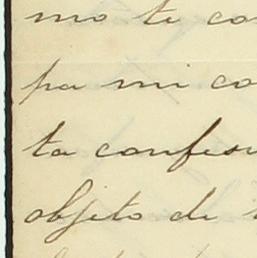 mo te co
pa mi co
ta confes
objeto de